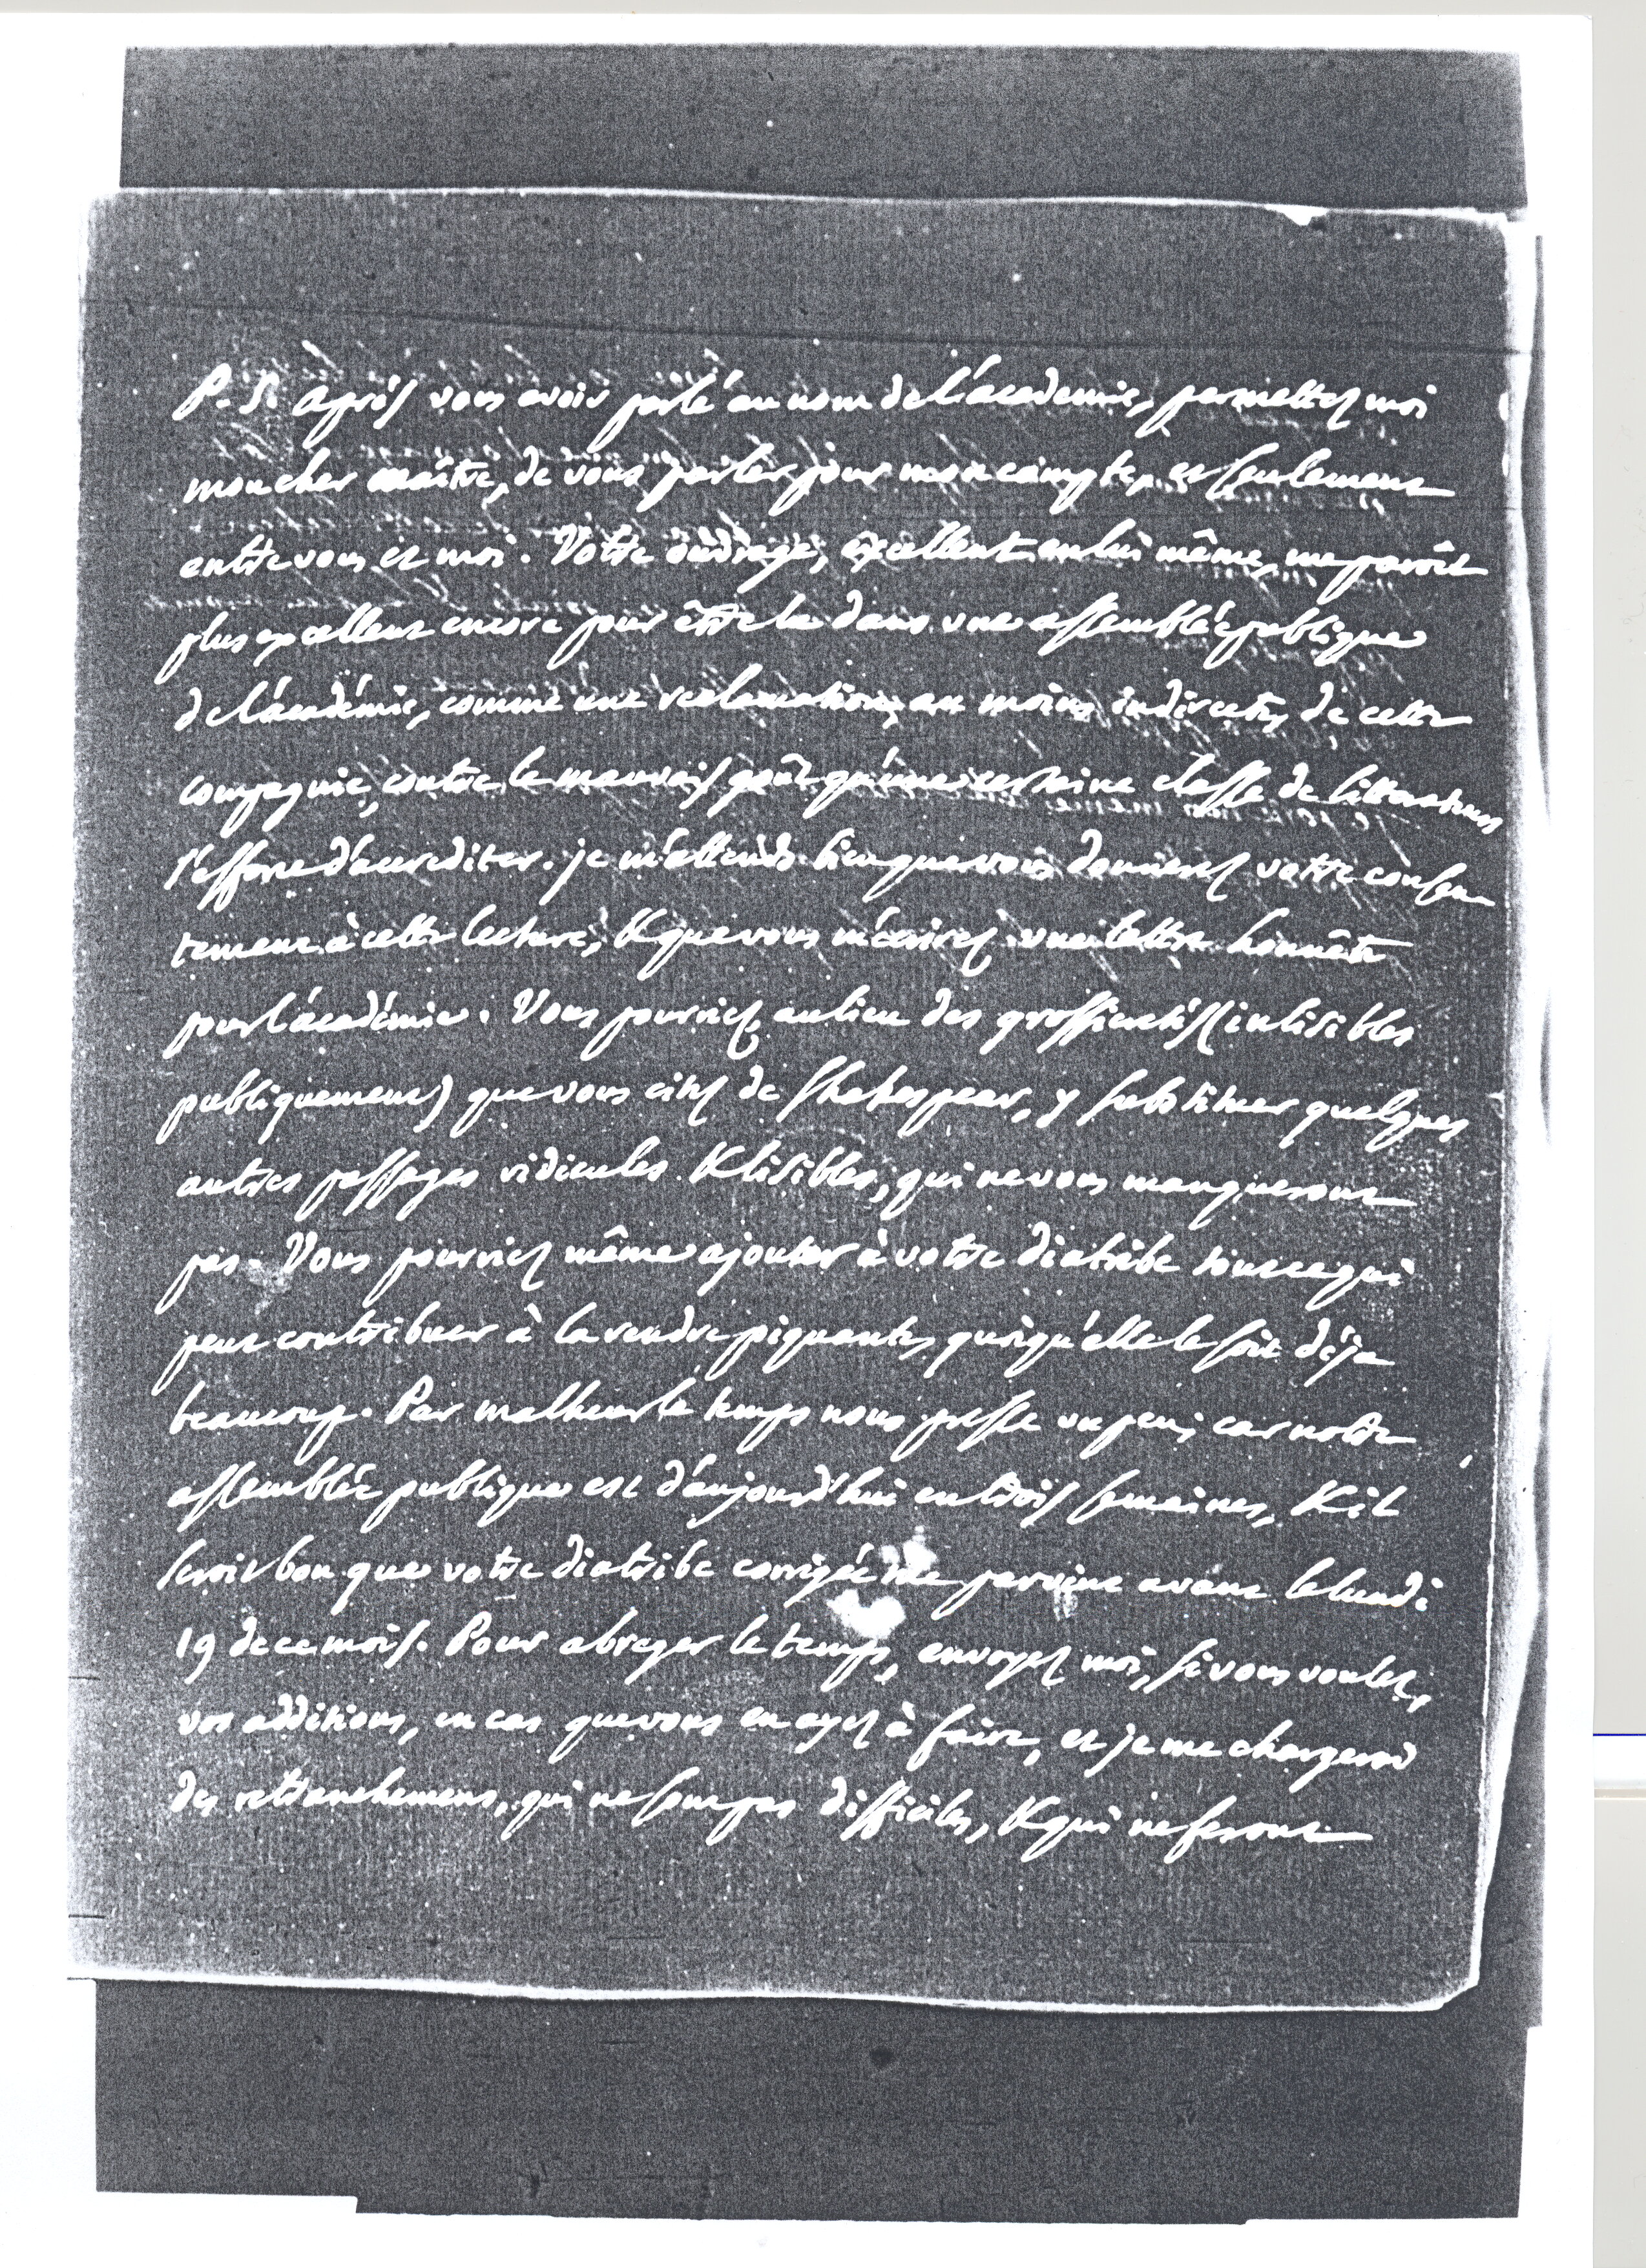 P. S. après vous avoir parlé au nom de l'académie, permettez moi
mon cher maître, de vous parler pour mon compte, et seulement
entre vous et moi. Votre ouvrage, excellent en lui même, me paroît
plus excellent encore pour être lu dans une assemblée publique
de l'académie, comme une reclamation, au moins indirecte, de cette
compagnie, contre le mauvais goût qu'une certaine classe de littérateurs
s'efforce d'accrediter. je m'attends bien que vous donnerez votre consen
tement à cette lecture, & que vous m'écrirez une lettre honnête
pour l'académie. Vous pourriez, au lieu des grossieretés (inlisibles
publiquement) que vous citez de Shakespear, y substituer quelques
autres passages ridicules & lisibles, qui ne vous manqueront
pas. Vous pourriez même ajouter à votre diatribe tout ce qui
peut contribuer à la rendre piquante, quoiqu'elle le soit déja
beaucoup. Par malheur le temps nous presse un peu; car notre
assemblée publique est d'aujourd'hui en trois semaines, & il
seroit bon que votre diatribe corrigée me parvint avant le lundi
19 de ce mois. Pour abreger le temps, envoyez moi, si vous voulez,
vos additions, en cas que vous en ayez à faire, et je me chargerai
des retranchemens, qui ne sont pas difficiles, & qui ne feront